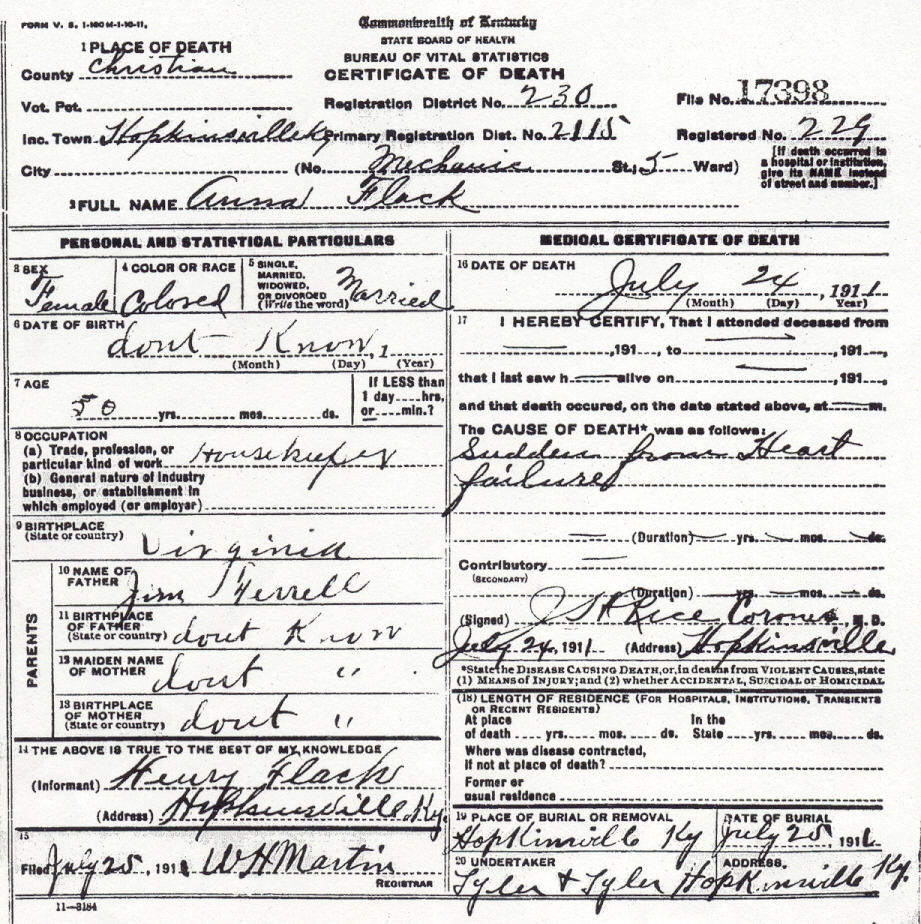 FORM V. S. 1-100M-1-10-11.
Commonwealth of Kentucky
STATE BOARD OF HEALTH
BUREAU OF VITAL STATISTICS
CERTIFICATE OF DEATH
1 PLACE OF DEATH
County Christian
Vot. Pct.
Registration District No. 230
File No. 17398
Inc. Town Hopkinsville Ky
Primary Registration Dist. No. 2115
Registered No. 229
City
(No. Mechanic St., 5 Ward)
[If death occurred in
a hospital or institution,
give its NAME instead
of street and number.]
2 FULL NAME Anna Flack
PERSONAL AND STATISTICAL PARTICULARS
3 SEX
Female
4 COLOR OR RACE
Colored
5 SINGLE,
MARRIED,
WIDOWED,
OR DIVORCED
(Write the word)
Married
6 DATE OF BIRTH
dont Know, 1
(Month) (Day) (Year)
7 AGE
50 yrs. mos. ds.
If LESS than
1 day hrs,
or min.?
8 OCCUPATION
(a) Trade, profession, or
particular kind of work Housekeeper
(b) General nature of industry
business, or establishment in
which employed (or employer)
9 BIRTHPLACE
(State or country)
Virginia
PARENTS
10 NAME OF
FATHER
Jim Terrell
11 BIRTHPLACE
OF FATHER
(State or country) dont Know
12 MAIDEN NAME
OF MOTHER dont "
13 BIRTHPLACE
OF MOTHER
(State or country) dont "
14 THE ABOVE IS TRUE TO THE BEST OF MY KNOWLEDGE
(Informant) Henry Flack
(Address) Hopkinsville, Ky.
15
Filed July 25, 1911 WH Martin
REGISTRAR
11-3184
MEDICAL CERTIFICATE OF DEATH
16 DATE OF DEATH
July 24, 1911
(Month) (Day) Year)
17 I HEREBY CERTIFY, That I attended deceased from
,191 , to ,191 ,
that I last saw h alive on ,191 ,
and that death occured, on the date stated above, at m.
The CAUSE OF DEATH* was as follows:
Sudden from Heart
failure
(Duration) yrs. mos. ds.
Contributory
(SECONDARY)
(Duration) yrs. mos. ds.
(Signed) Rice Coroner, M. D.
July 24, 1911 (Address) Hopkinsville
*State the DISEASE CAUSING DEATH, or, in deaths from VIOLENT CAUSES, state
(1) MEANS OF INJURY; and (2) whether ACCIDENTAL, SUICIDAL OR HOMICIDAL
(18) LENGTH OF RESIDENCE (FOR HOSPITALS, INSTITUTIONS, TRANSIENTS
OR RECENT RESIDENTS)
At place In the
of death yrs. mos. ds. State yrs. mos. ds.
Where was disease contracted,
if not at place of death?
Former or
usual residence
19 PLACE OF BURIAL OR REMOVAL
Hopkinsville Ky
DATE OF BURIAL
July 25 1911
20 UNDERTAKER
Tyler & Tyler
ADDRESS.
Hopkinsville Ky.